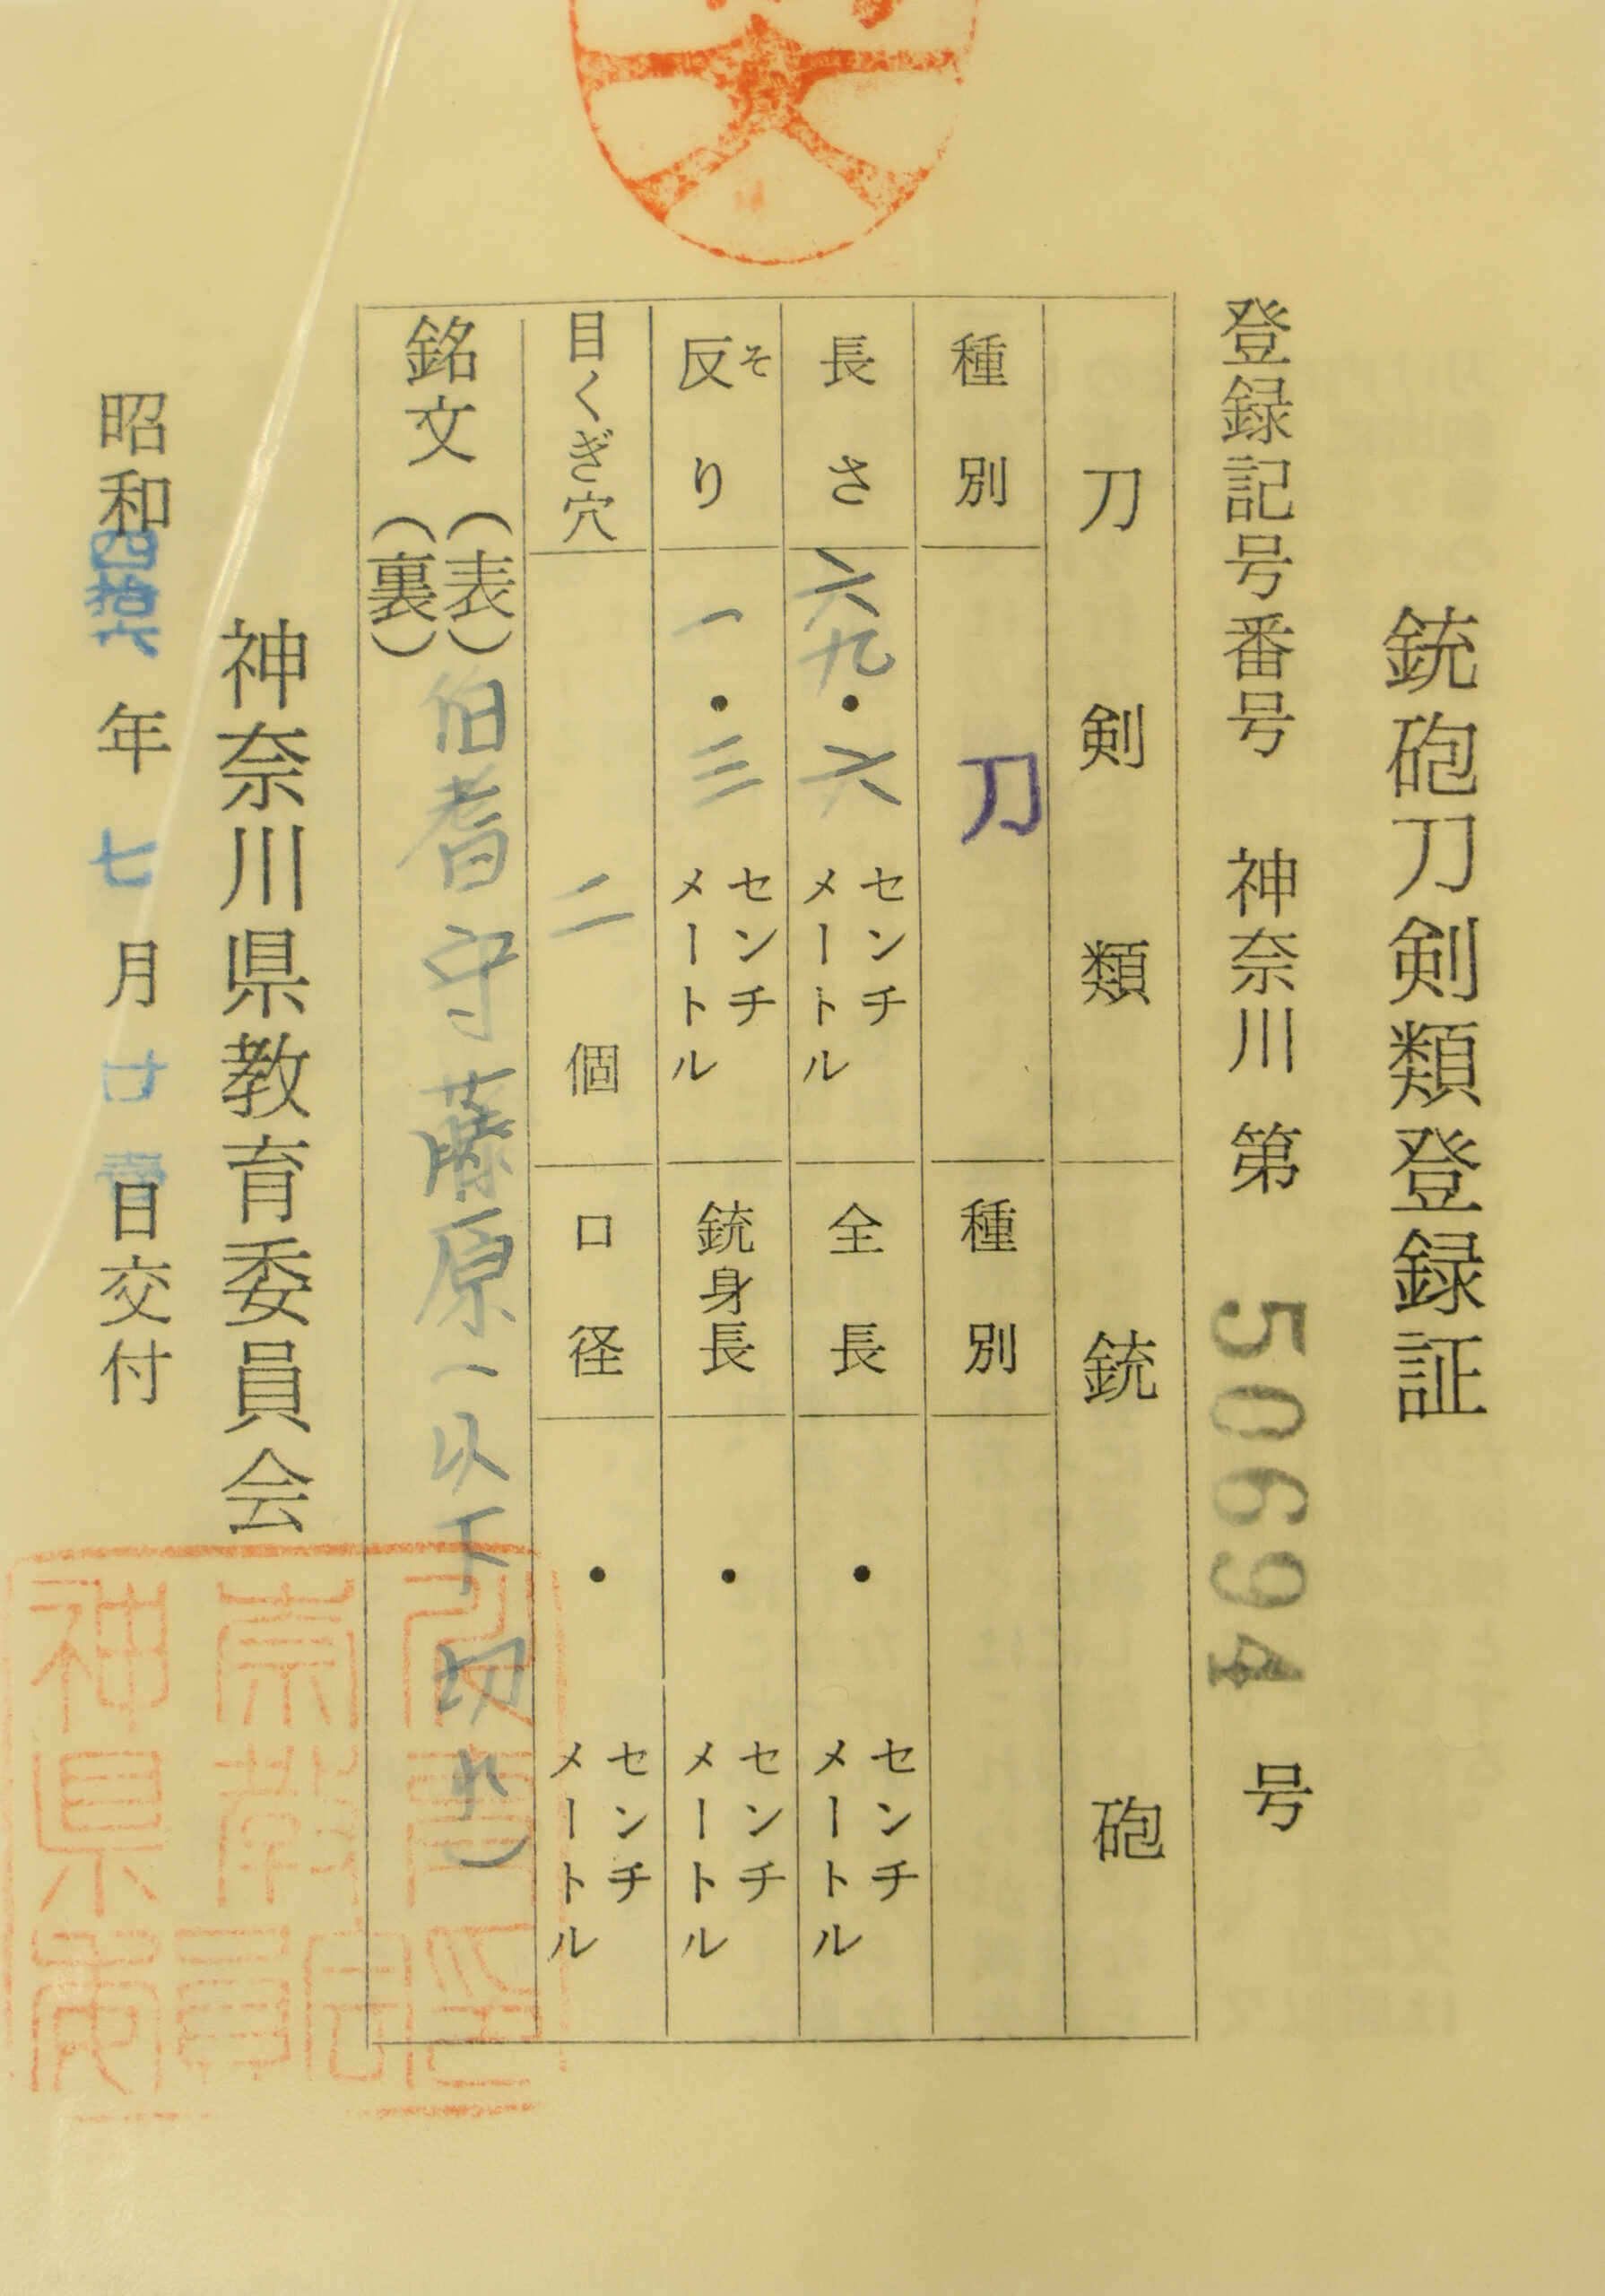 銃砲刀剣類登録証
登録記号番号 神奈川 第 50694 号
刀剣類 銃砲
種別 刀 種別
長さ 六九・六 センチメートル 全長 ・ センチメートル
反り そ 一・三 センチメートル 銃身長 ・ センチメートル
目くぎ穴 二 個 口径 ・ センチメートル
銘文 (表) 伯耆守藤原(以下切れ)
(裏)
神奈川県教育委員会
昭和四拾六年七月廿壱日交付